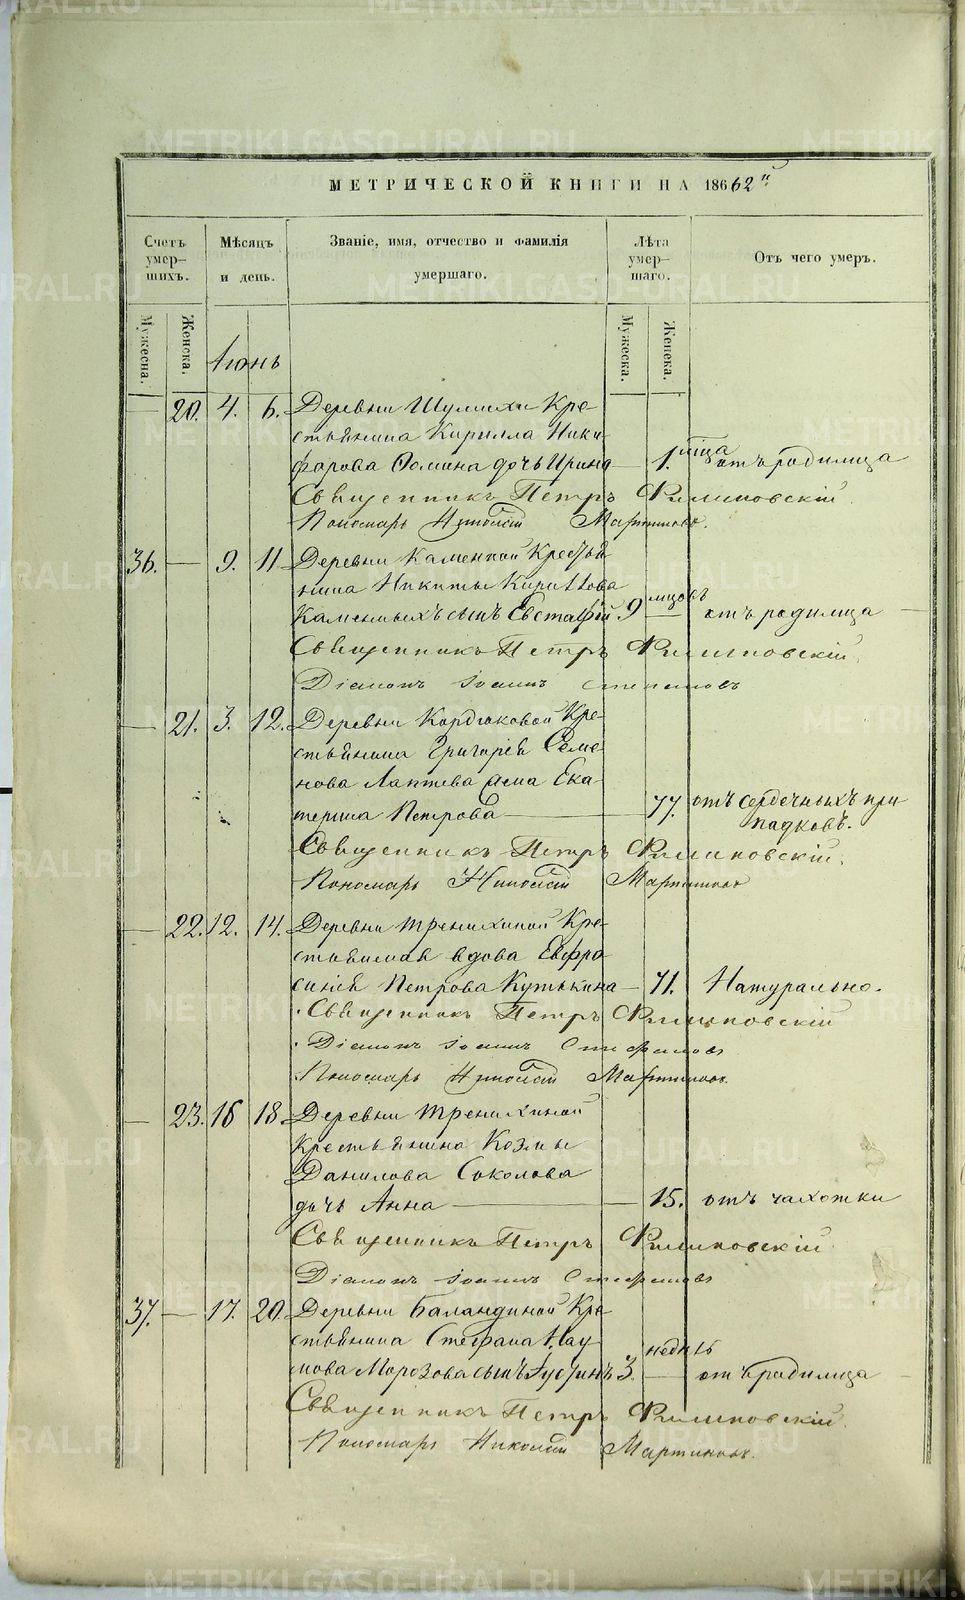 МЕТРИЧЕСКОЙ КНИГИ НА 18662й
Счетъ умер-шихъ.
Мѣсяцъ и день.
Званіе, имя, отчество и фамилія умершаго.
Лѣта умер-шаго.
Отъ чего умеръ.
Мужеска.
Женска.
Мужеска.
Женска.
Іюнь
20. 4. 6. Деревни Шумихи Кре-
стьянина Кирилла Ники-
форова дочь Ирина 1. отъ родимца
Священникъ Петръ Филиповскій
Пономарь Николай Мартиновъ.
36. 9. 11 Деревни Каменной Крестья
нина Никиты Кириллова
Каменныхъ сынъ Евстафій. 9 отъ родимца
Священникъ Петръ Филиповскій.
Діаконъ Іоаннъ Стефановъ
21. 3. 12. Деревни Кордюковой Кре-
стьянина Григорія Семе
нова Лаптева жена Ека
терина Петрова 77. отъ сердечныхъ при
падковъ.
Священникъ Петръ Филиповскій.
Пономарь Николай Мартиновъ
22. 12. 14. Деревни Кре-
стьянская вдова Евфро
синія Петрова Кутькина 71. Натурально.
Священникъ Петръ Филиповскій
Діаконъ Іоаннъ Стефановъ
Пономарь Николай Мартиновъ.
23. 16 18. Деревни
Крестьянина Козмы
Данилова Соколова
дочь Анна 15. отъ чахотки
Священникъ Петръ Филиповскій
Діаконъ Іоаннъ Стефановъ
37. 17. 20. Деревни Баландиной Кре-
стьянина Стефана Нау
мова Морозова сынъ Іустинъ 3. недѣль отъ родимца
Священникъ Петръ Филиповскій.
Пономарь Николай Мартиновъ.
METRIKI.GASO-URAL.RU